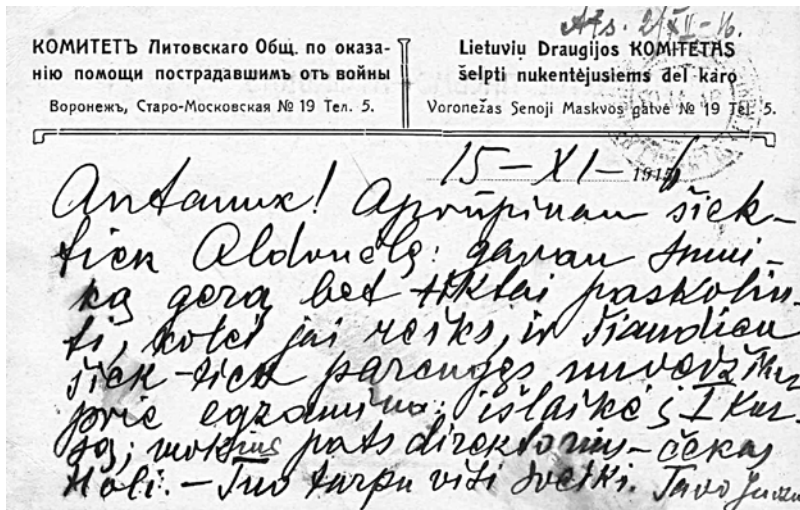 Ats. 2/XII-16.
КОМИТЕТЪ Литовскаго Общ. по оказа-
нію помощи пострадавшимъ отъ войны
Воронежъ, Старо-Московская № 19 Тел. 5.
Lietuvių Draugijos KOMITETAS
šelpti nukentėjusiems dėl karo
Voronežas Senoji Maskvos gatvė № 19 Tel. 5.
15-XI-1916
Antanux! Aprūpinau šiek-
tiek Aldonėlę: gavau smui-
ką gerą bet tiktai paskolin-
ti, kolei jai reiks, ir šiandien
šiek-tiek parengęs nuvedžiau
prie egzamino: išlaikė į I kur-
są; mokins pats direktorius-čekas
- Tuo tarpu visi sveiki. Tavo